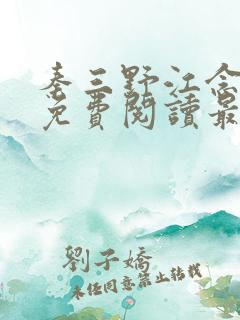 秦三野江念
免費閱讀最
劉子嬌
未經同意禁止轉載